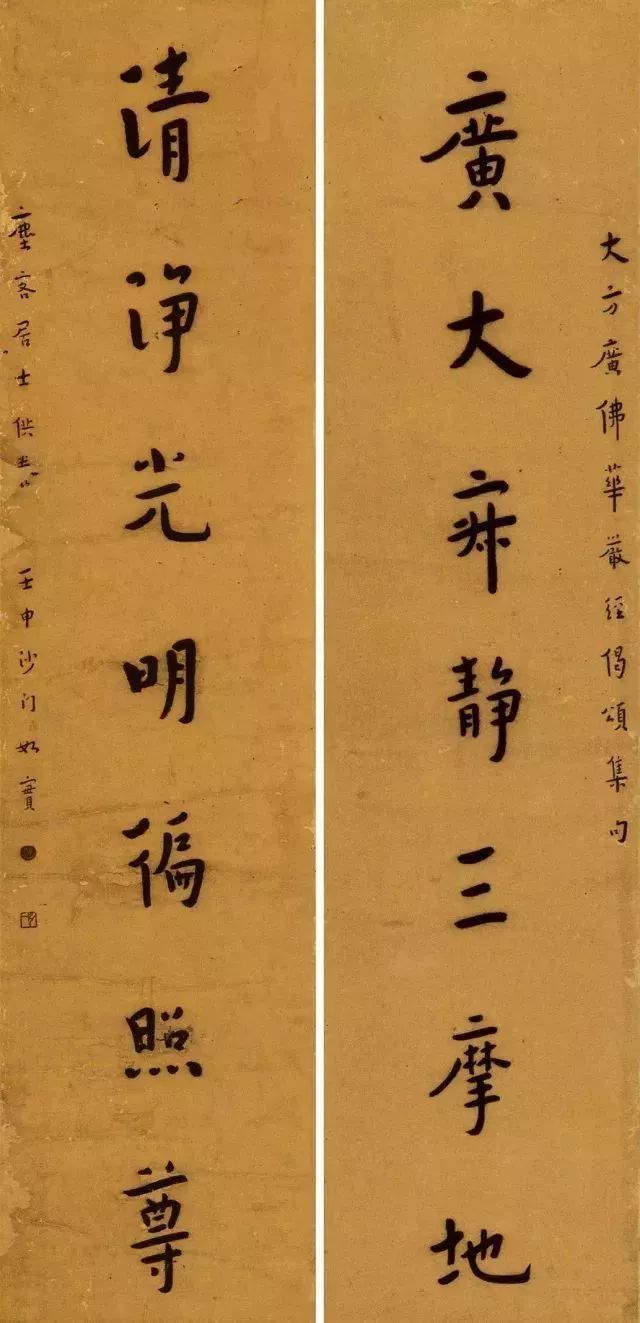 大方廣佛華嚴經偈頌集句
廣大寂静三摩地
清净光明徧照尊
塵客居士供 壬申沙门如實